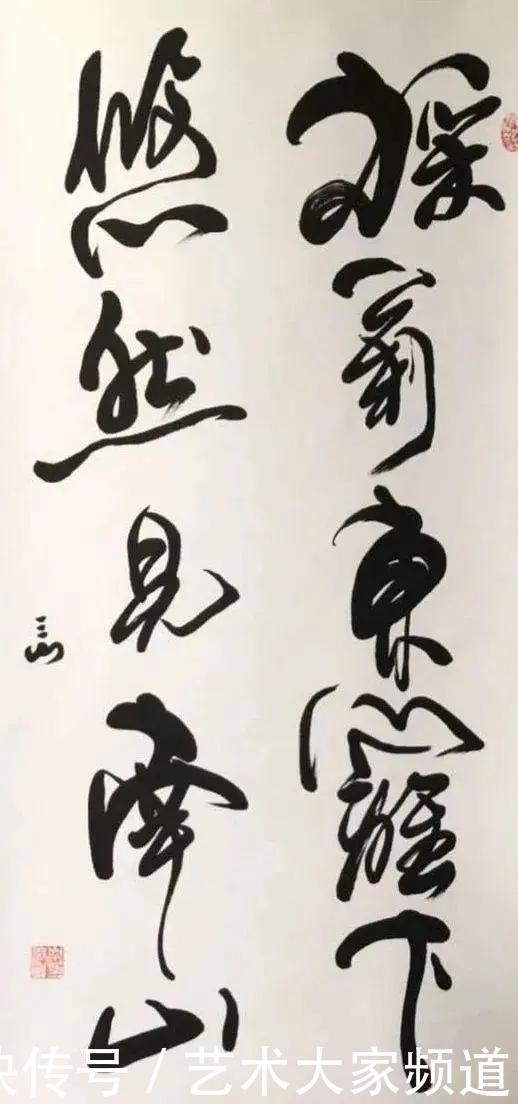 採菊東籬下
悠然見南山
三山
快传号 / 艺术大家频道